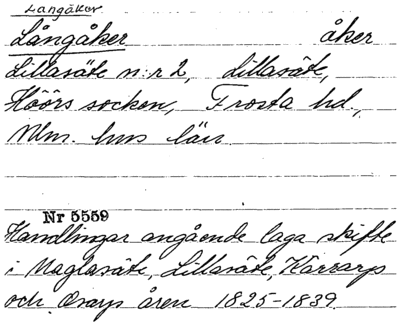 Långåker
Långåker åker
Lillasäte n:r 2, Lillasäte,
Höörs socken, Frosta hd.,
Mlm. hus län
Nr 5559
Handlingar angående laga skifte
i Maglasäte, Lillasäte, Kärrarp
och Orarp åren 1825-1839.